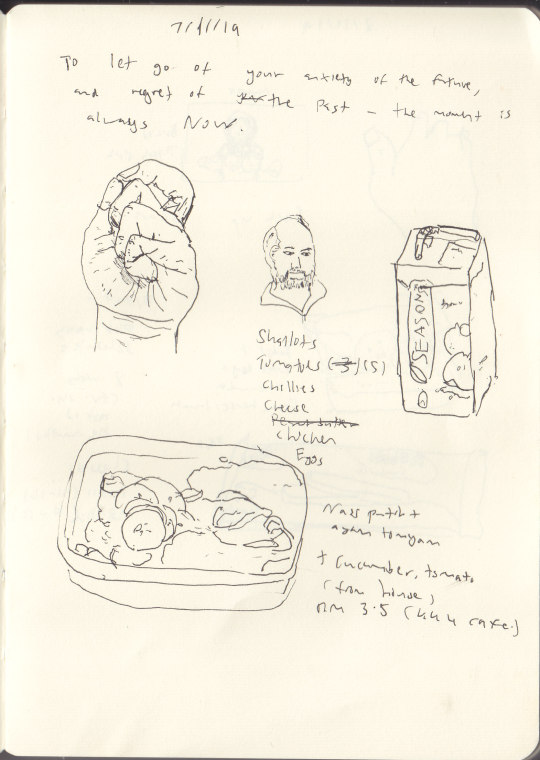 To let go of your anxiety of the future,
and regret of the Past - the moment is
always Now.
SEASONS
Shallots
Tomatoes (3) (5)
Chillies
Cheese
Peanut butter
Chicken
Eggs
Nasi putih +
ayam tomyam
+ Cucumber, tomato
(from house)
RM 3.5